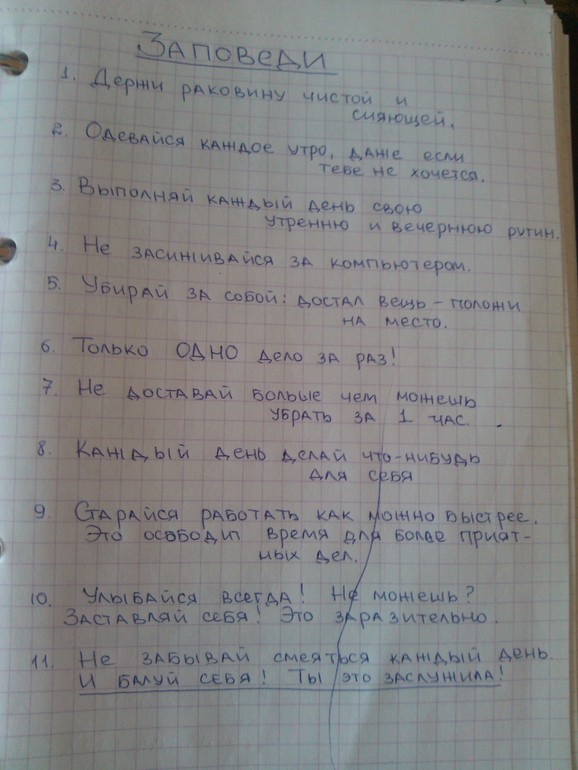 Заповеди
1. Держи раковину чистой и
сияющей.
2. Одевайся каждое утро, даже если
тебе не хочется.
3. Выполняй каждый день свою
утренню и вечернюю рутин.
4. Не засиживайся за компьютером.
5. Убирай за собой: достал вещь – положи
на место.
6. Только ОДНО дело за раз!
7. Не доставай больше чем можешь
убрать за 1 час.
8. Каждый день делай что-нибудь
для себя
9. Старайся работать как можно быстрее.
Это освободит время для более прият-
ных дел.
10. Улыбайся всегда! Не можешь?
Заставляй себя! Это заразительно.
11. Не забывай смеяться каждый день.
И балуй себя! Ты это заслужила!